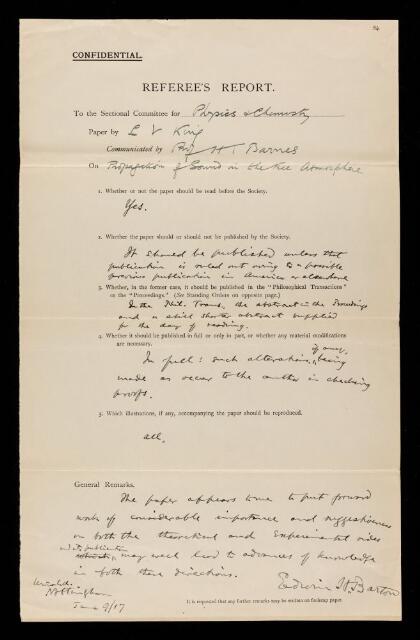 CONFIDENTIAL.
REFEREE'S REPORT.
To the Sectional Committee for Physics & Chemistry
Paper by L V King
Communicated by Prof H T Barnes
On Propagation of Sound in the Free Atmosphere
1. Whether or not the paper should be read before the Society.
Yes.
2. Whether the paper should or should not be published by the Society.
It should be published unless that
publication is ruled out owing to a possible
previous publication in America or elsewhere
3. Whether, in the former case, it should be published in the "Philosophical Transactions"
or the "Proceedings." (See Standing Orders on opposite page.)
In the Phil. Trans, the abstract in the Proceedings
and a still shorter abstract supplied
for the day of reading.
4. Whether it should be published in full or only in part, or whether any material modifications
are necessary.
if any,
In full: such alterations, being
made as occur to the author in checking
proofs.
5. Which illustrations, if any, accompanying the paper should be reproduced.
all.
General Remarks.
The paper appears to me to put forward
work of considerable importance and suggestiveness
on both the theoretical and experimental sides
and its publication
may well lead to advances of knowledge
in both these directions.
Edwin H. Barton
Nottingham
June 9/17
It is requested that any further remarks may be written on foolscap paper.